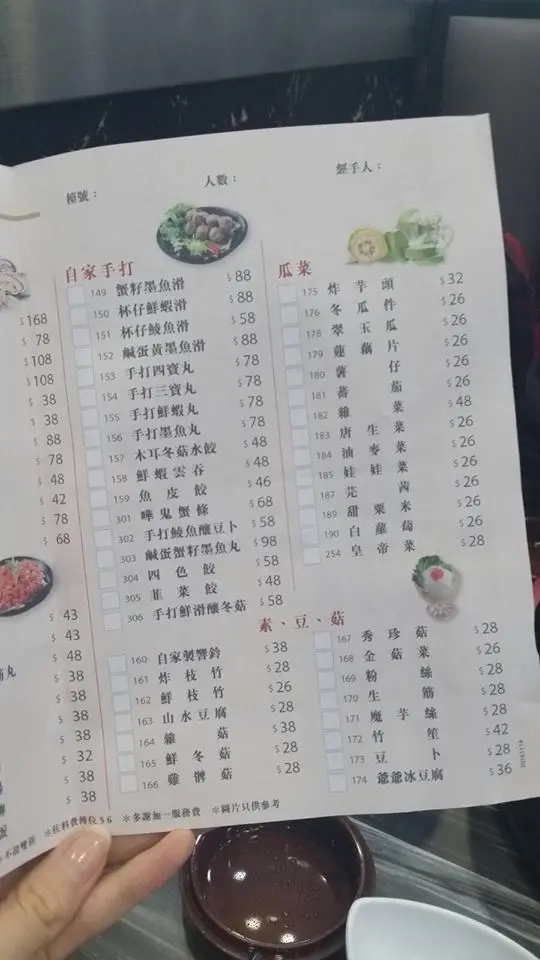 檯號：
人數：
經手人：
$168
$ 78
$108
$108
$ 38
$ 38
$ 88
$ 78
$ 48
$ 42
$ 78
$ 68
$ 43
$ 43
丸 $ 48
$ 38
$ 38
$ 38
$ 32
$ 38
$ 38
自家手打
149 蟹籽墨魚滑 $88
150 杯仔鮮蝦滑 $88
151 杯仔鯪魚滑 $58
152 鹹蛋黃墨魚滑 $88
153 手打四寶丸 $78
154 手打三寶丸 $78
155 手打鮮蝦丸 $78
156 手打墨魚丸 $78
157 木耳冬菇水餃 $48
158 鮮蝦雲吞 $48
159 魚皮餃 $46
301 嘩鬼蟹條 $68
302 手打鯪魚釀豆卜 $58
303 鹹蛋蟹籽墨魚丸 $98
304 四色餃 $58
305 韮菜餃 $48
306 手打鮮滑釀冬菇 $58
瓜菜
175 炸芋頭 $32
176 冬瓜件 $26
178 翠玉瓜 $26
179 蓮藕片 $26
180 薯仔 $26
181 蕃茄 $26
182 雜菜 $48
183 唐生菜 $26
184 油麥菜 $26
185 娃娃菜 $26
187 芫茜 $26
189 甜粟米 $26
190 白蘿蔔 $26
254 皇帝菜 $28
素、豆、菇
160 自家製響鈴 $38
161 炸枝竹 $28
162 鮮枝竹 $26
163 山水豆腐 $28
164 雜菇 $38
165 鮮冬菇 $28
166 雞髀菇 $28
167 秀珍菇 $28
168 金菇菜 $26
169 粉絲 $28
170 生筋 $28
171 魔芋絲 $28
172 竹笙 $42
173 豆卜 $28
174 爺爺冰豆腐 $36
＊佐料費轉位$6 ＊多謝加一服務費 ＊圖片只供參考